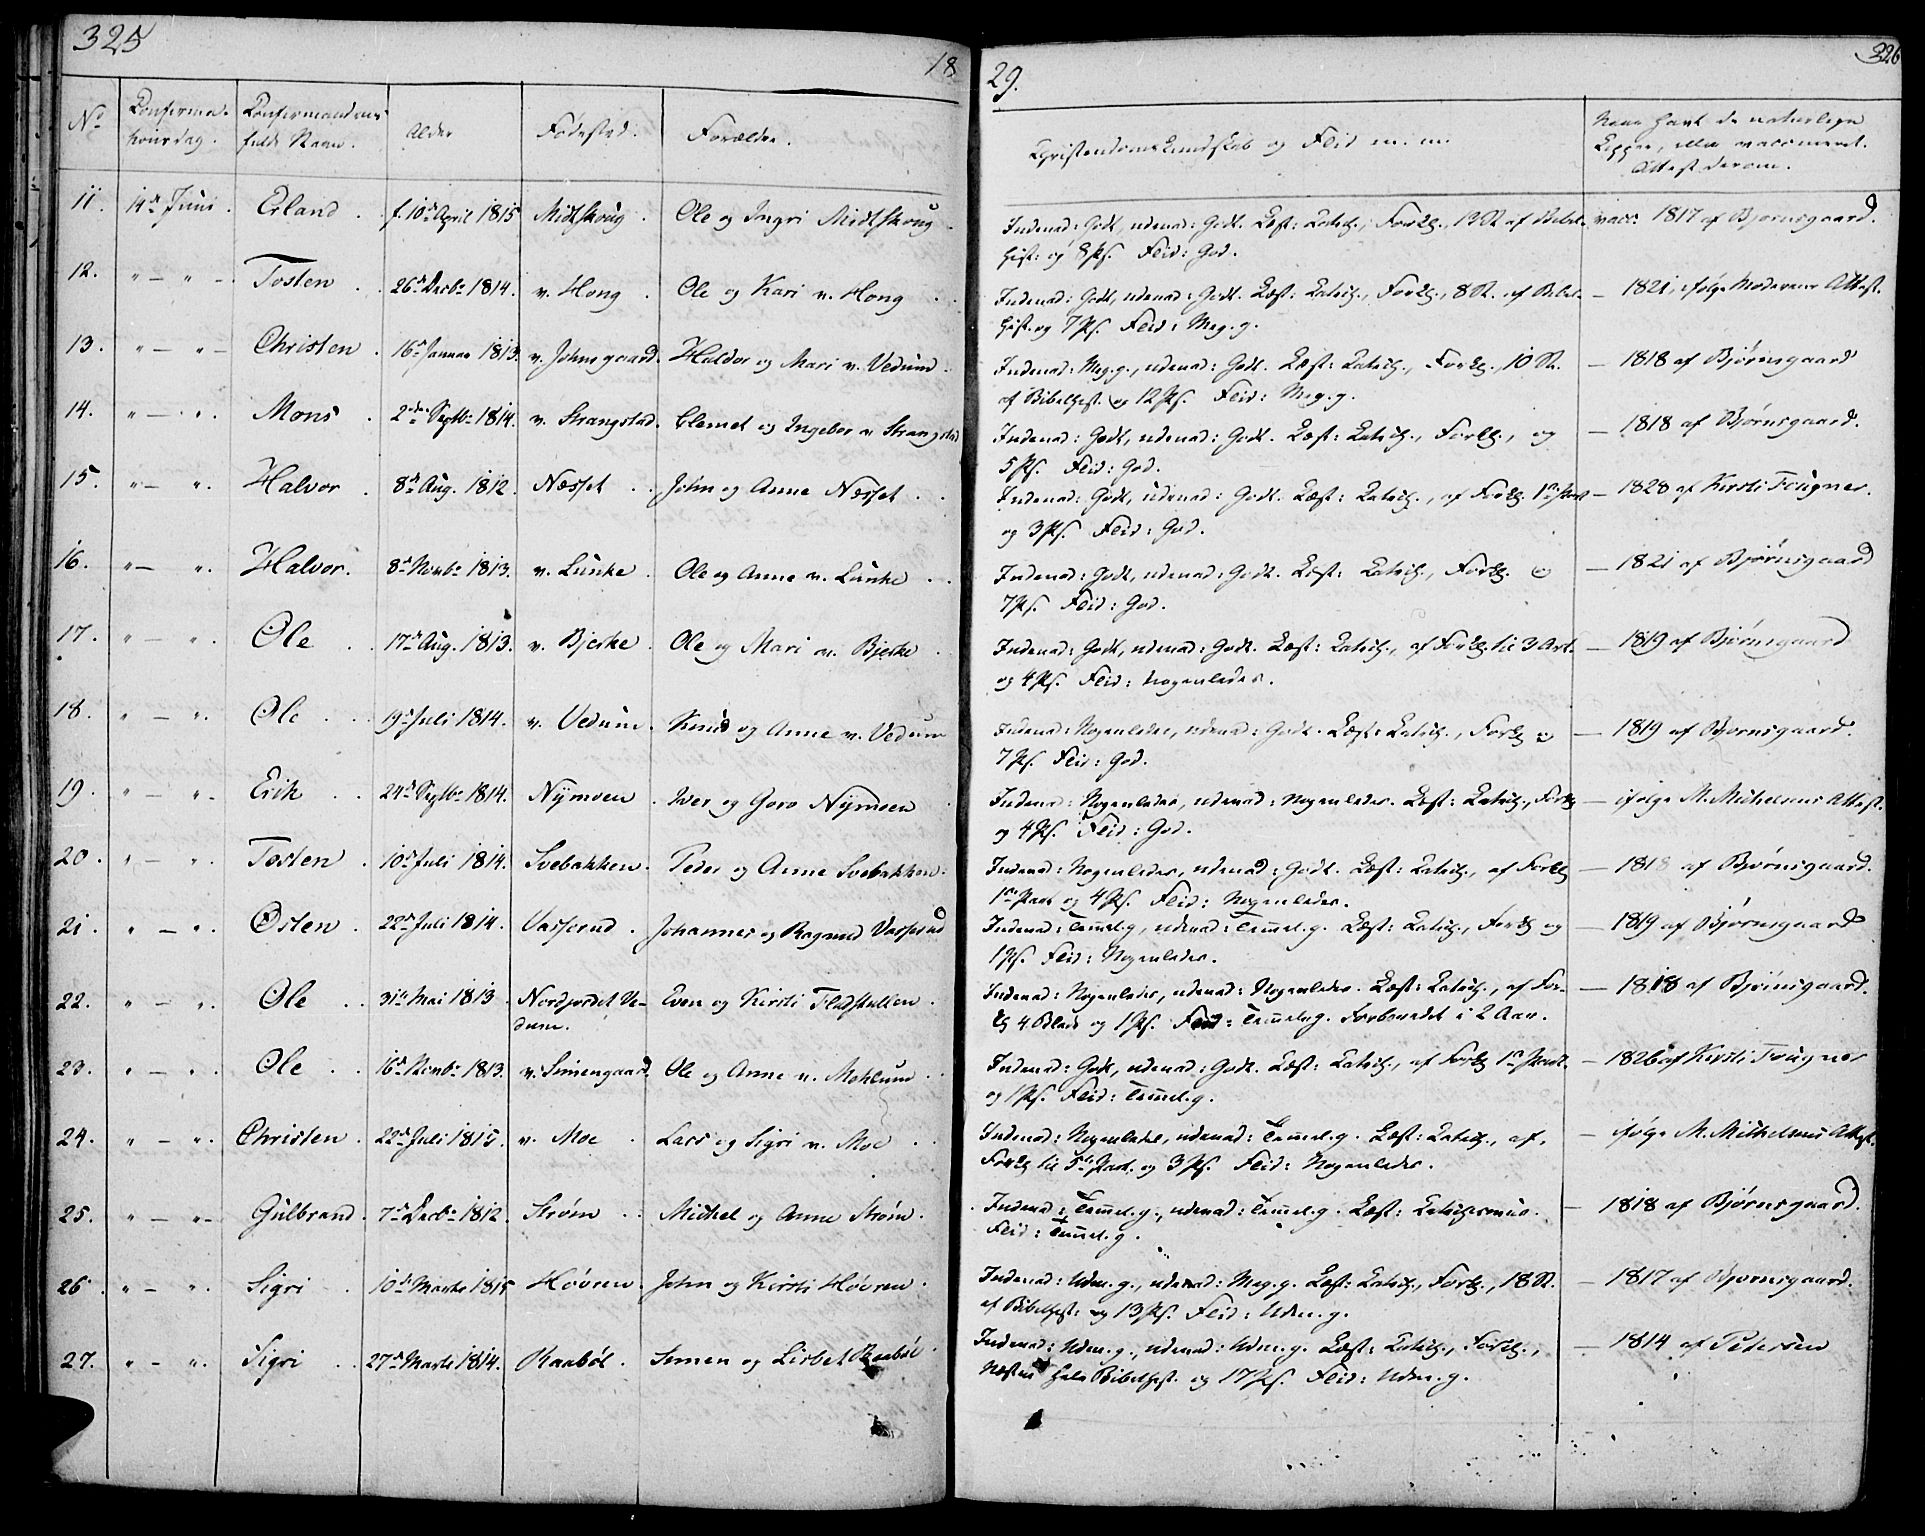 325
18
29.
326
No
Confirma-
tionsdag.
Confirmandens
fulde Navn.
Alder
Fødested.
Forældre.
Christendoms Kundskab og Flid m. m.
Naar havt de naturlige
Kopper, eller vaccineret.
Attest derom.
11. 14de Juni. Erland. f. 10de April 1815 Midtskoug. Ole og Ingri Midtskoug.
Indenad: Godt, udenad: Godt. Læst: Catech., Forkl., 13 St. af Bibel-
hist: og 8 Ps. Flid: God.
vacc: 1817 af Bjørnsgaard.
12. " — " — Tosten. 26de Decbr 1814. v. Hong. Ole og Kari v. Hong.
Indenad: Godt, udenad: Godt. Læst: Catech., Forkl., 8 St. af Bibel-
hist. og 7 Ps. Flid: Meg. g.
— 1821, ifølge Moderens Attest.
13. " — " — Christen. 16de Januar 1813. v. Johnsgaard. Haldor og Mari v. Vedum.
Indenad: Meg. g., udenad: Godt. Læst: Catech., Forkl., 10 St.
af Bibelhist. og 12 Ps. Flid: Meg. g.
— 1818 af Bjørnsgaard
14. " — " . Mons. 2den Septbr 1814. v. Strangstad. Clemet og Ingebor v Strangstad
Indenad: Godt, udenad: Godt. Læst: Catech., Forkl., og
5 Ps. Flid: God.
— 1818 af Bjørnsgaard.
15. " — " . Halvor. 8de Aug. 1812. Næsset. John og Anne Næsset.
Indenad: Godt, udenad: Godt. Læst: Catech., af Forkl. 1ste Part
og 3 Ps. Flid: God.
— 1828 af Kirsti Fougner.
16. " — " . Halvor. 8de Novbr 1813. v. Lunke. Ole og Anne v. Lunke.
Indenad: Godt, udenad: Godt. Læst: Catech., Forkl. og
7 Ps. Flid: God.
— 1821 af Bjørnsgaard
17. " — " . Ole. 17de Aug. 1813. v. Bjerke. Ole og Mari v. Bjerke.
Indenad: Godt, udenad: Godt. Læst: Catech., af Forkl. til 3 Art.
og 4 Ps. Flid: Nogenledes.
— 1819 af Bjørnsgaard
18. " — " . Ole. 19de Juli 1814. v. Vedum. Knud og Anne v. Vedum
Indenad: Nogenledes, udenad: Godt. Læst: Catech., Forkl og
7 Ps. Flid: God.
— 1819 af Bjørnsgaard.
19. " — " - Erik. 24de Septbr 1814. Nÿmoen. Iver og Goro Nÿmoen
Indenad: Nogenledes, udenad: Nogenledes. Læst: Catech., Forkl
og 4 Ps. Flid: God.
— ifølge M. Michelsens Attest.
20. " — " . Tosten. 10de Juli 1814. Svebakken. Peder og Anne Svebakken.
Indenad: Nogenledes, udenad: Godt. Læst: Catech., af Forkl
1ste Part og 4 Ps. Flid: Nogenledes.
— 1818 af Bjørnsgaard.
21. " — " . Østen. 22de Juli 1814. Vasserud. Johannes og Ragnild Vasserud
Indenad: Temmel. g, udenad: Temmel. g. Læst: Catech., Forkl og
1 Ps. Flid: Nogenledes.
— 1819 af Bjørnsgaard
22. " — " . Ole. 31te Mai 1813. Nordjordet Ve- Even og Kirsti
dum.
Indenad: Nogenledes, udenad: Nogenledes. Læst: Catech., af For-
kl 4 Blade og 1 Ps. Flid: Temmelig. Forberedet i 2 Aar.
— 1818 af Bjørnsgaard.
23. " — " . Ole. 16de Novbr 1813. v. Simengaard. Ole og Anne v. Mehlum.
Indenad: Godt, udenad: Godt. Læst: Catech., af Forkl 1ste Part.
og 1 Ps. Flid: Temmel. g.
— 1826 af Kirsti Fougner
24. " — " . Christen. 22de Juli 1815. v. Moe. Lars og Sigri v. Moe.
Indenad: Nogenledes, udenad: Temmel. g. Læst: Catech., af
Forkl til 5te Part. og 3 Ps. Flid: Nogenledes.
— ifølge M. Michelsens Attest.
25. " — " - Gulbrand. 7de Decbr 1812. Strøm. Michel og Anne Strøm.
Indenad: Temmel. g., udenad: Temmel. g. Læst: Catechismus.
Flid: Temmel. g.
— 1818 af Bjørnsgaard.
26. " — " . Sigri. 10de Marts 1815 Høvren. John og Kirsti Høvren.
Indenad: Udm. g., udenad: Meg. g. Læst: Catech., Forkl., 18 St.
af Bibelhist: og 13 Ps. Flid: Udm. g.
— 1817 af Bjørnsgaard.
27. " — " . Sigri. 27de Marts 1814. Raabøl. Simen og Lisbet Raabøl.
Indenad: Udm. g., udenad: Udm. g. Læst: Catech., Forkl.,
Næsten hele Bibelhist. og 17 Ps. Flid: Udm. g.
— 1814 af Petersen